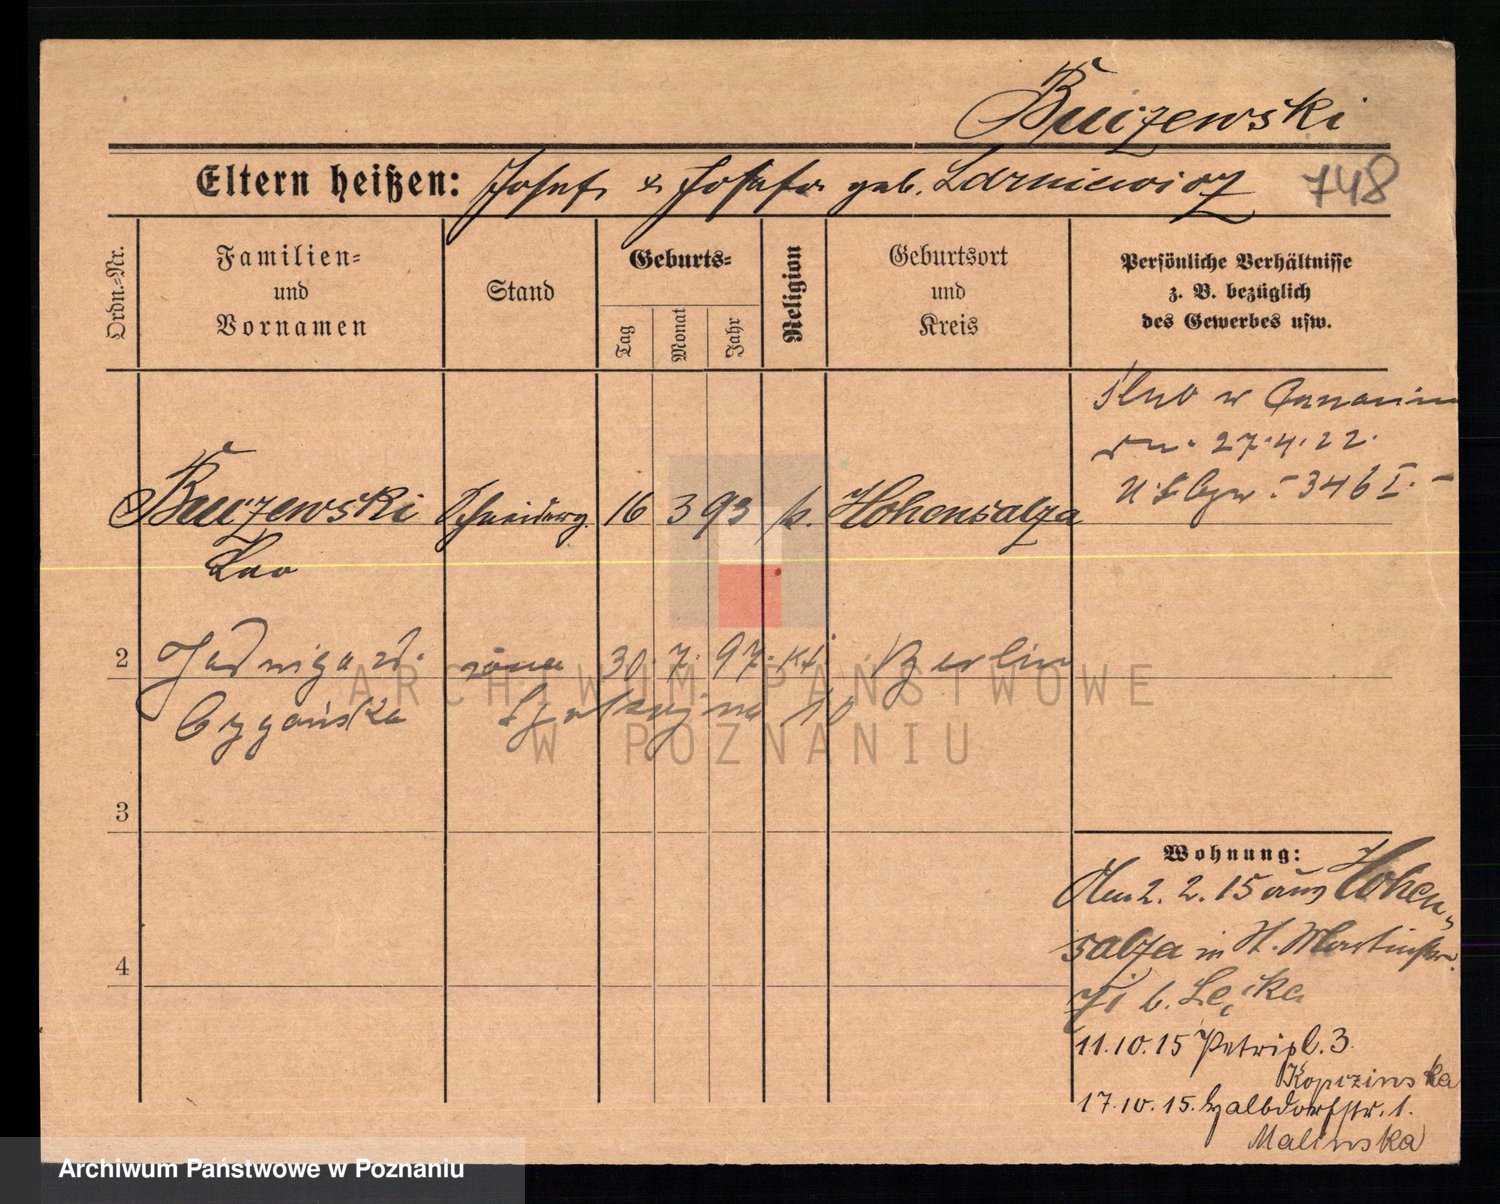 Buczewski
Eltern heißen: Josef & Josefa geb. Larniewicz
748
Ordn.-Nr.
Familien-
und
Vornamen
Stand
Geburts-
Tag
Monat
Jahr
Religion
Geburtsort
und
Kreis
Persönliche Verhältnisse
z. B. bezüglich
des Gewerbes usw.
Ślub w Poznaniu
dn. 27.4.22.
346 I.
Buczewski Schneiderg. 16 3 93 k. Hohensalza
Leo
2 Jadwiga z d. żona 30. 7. 97. kt. Berlin
Cygańska
3
4
Wohnung:
Am 2. 2. 15 aus Hohen-
salza in St. Martinstr.
b. Łęcka
11.10.15 Petripl. 3.
Kopczinska
17.10.15. Halbdorfstr. 1.
Malinska
ARCHIWUM PAŃSTWOWE
W POZNANIU
Archiwum Państwowe w Poznaniu